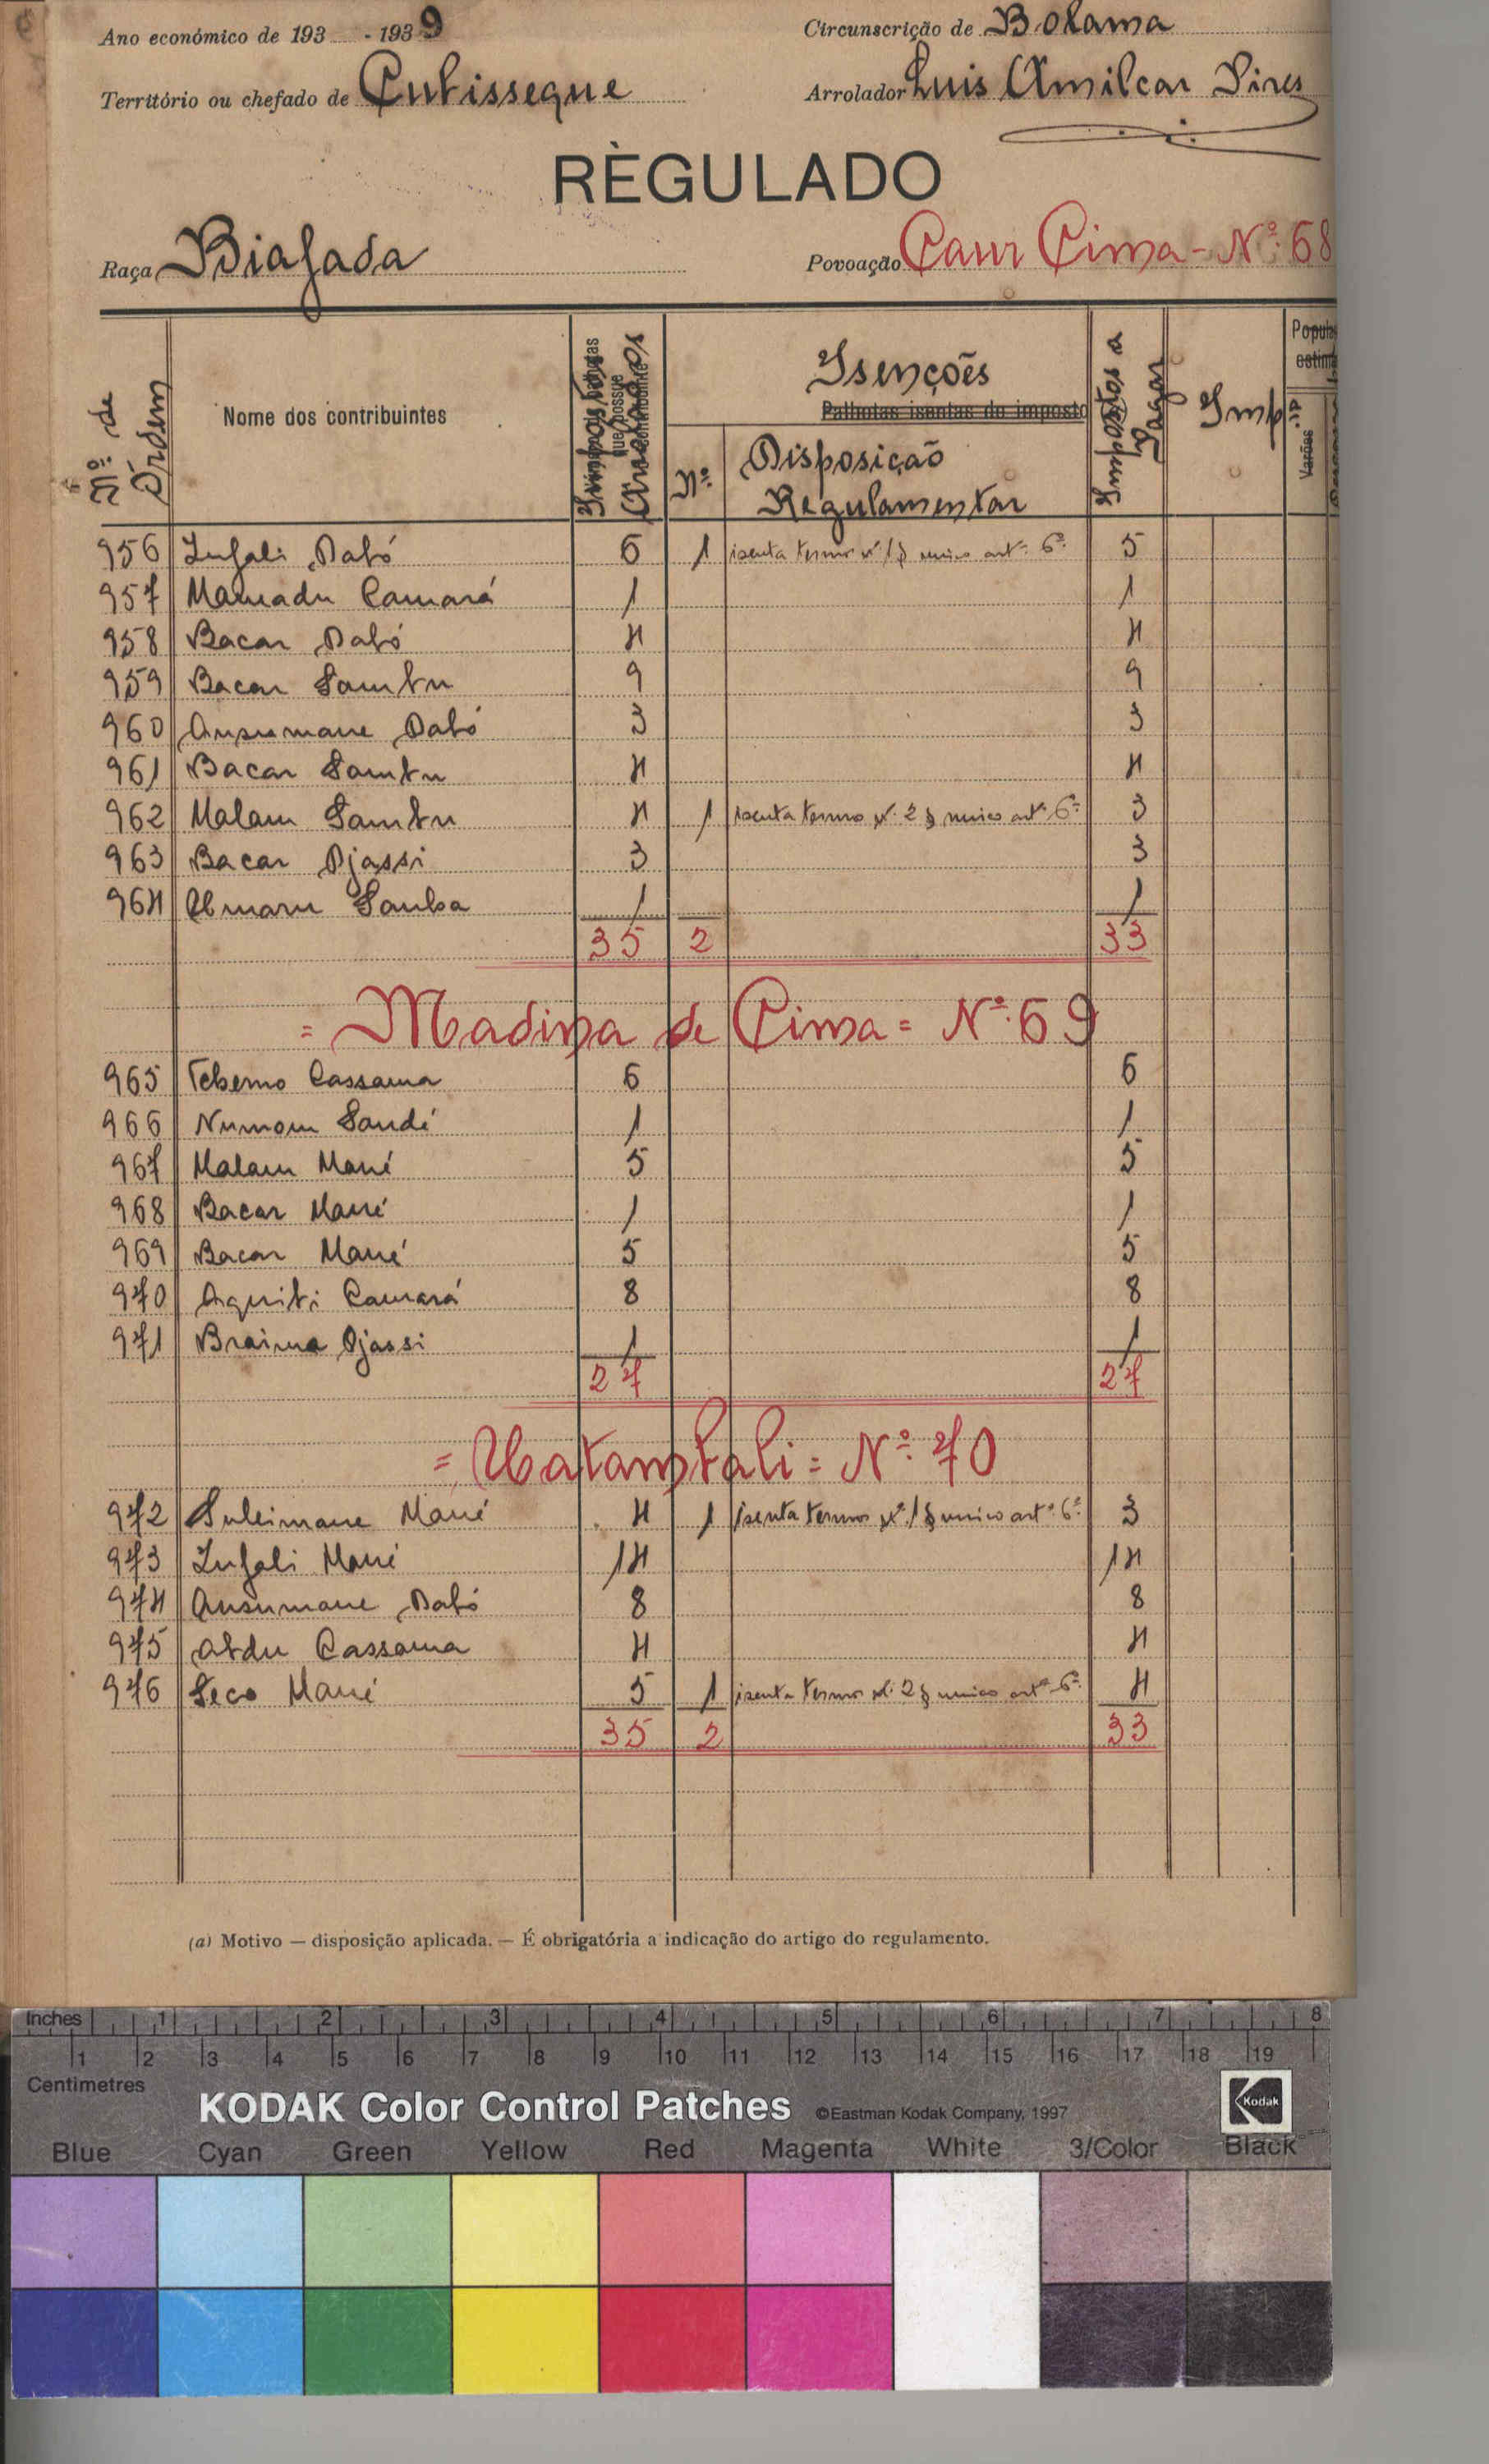 Ano económico de 193 - 1939 Circunscrição de Bolama
Território ou chefado de Cubisseque Arrolador Luis Amilcar Pires
RÈGULADO
Raça Biafada Povoação Caur Cima - Nº. 68
Nº. de Órdem
Nome dos contribuintes
Impostos Arrolados
Isenções
Palhotas isentas do imposto
Nº.
Disposição
Regulamentar
Impostos a Pagar
Imp
Varões
956 Infali Dabó 6 1 isenta termo nº 1 § unico artº. 6º. 5
957 Mamadu Camará 1 1
958 Bacar Dabó 4 4
959 Bacar Sambu 9 9
960 Ansumane Dabó 3 3
961 Bacar Sambu 4 4
962 Malam Sambu 4 1 isenta termo nº. 2 § unico artº. 6º 3
963 Bacar Djassi 3 3
964 Umaru Sanha 1 1
35 2 33
= Madina de Cima = Nº. 69
965 Tcherno Cassama 6 6
966 Numom Sandé 1 1
967 Malam Mané 5 5
968 Bacar Mané 1 1
969 Bacar Mané 5 5
970 Aquibi Camará 8 8
971 Braima Djassi 1 1
27 27
= Uatambali = Nº. 70
972 Suleimane Mané 4 1 isenta termo nº. 1 § unico artº. 6º. 3
973 Infali Mané 14 14
974 Ansumane Dabó 8 8
975 Abdu Cassama 4 4
976 Seco Mané 5 1 isenta termo nº. 2 § unico artº 6º. 4
35 2 33
(a) Motivo — disposição aplicada. — É obrigatória a indicação do artigo do regulamento.
Inches 1 2 3 4 5 6 7 8
1 2 3 4 5 6 7 8 9 10 11 12 13 14 15 16 17 18 19
Centimetres
KODAK Color Control Patches ©Eastman Kodak Company, 1997 Kodak
Blue Cyan Green Yellow Red Magenta White 3/Color Black